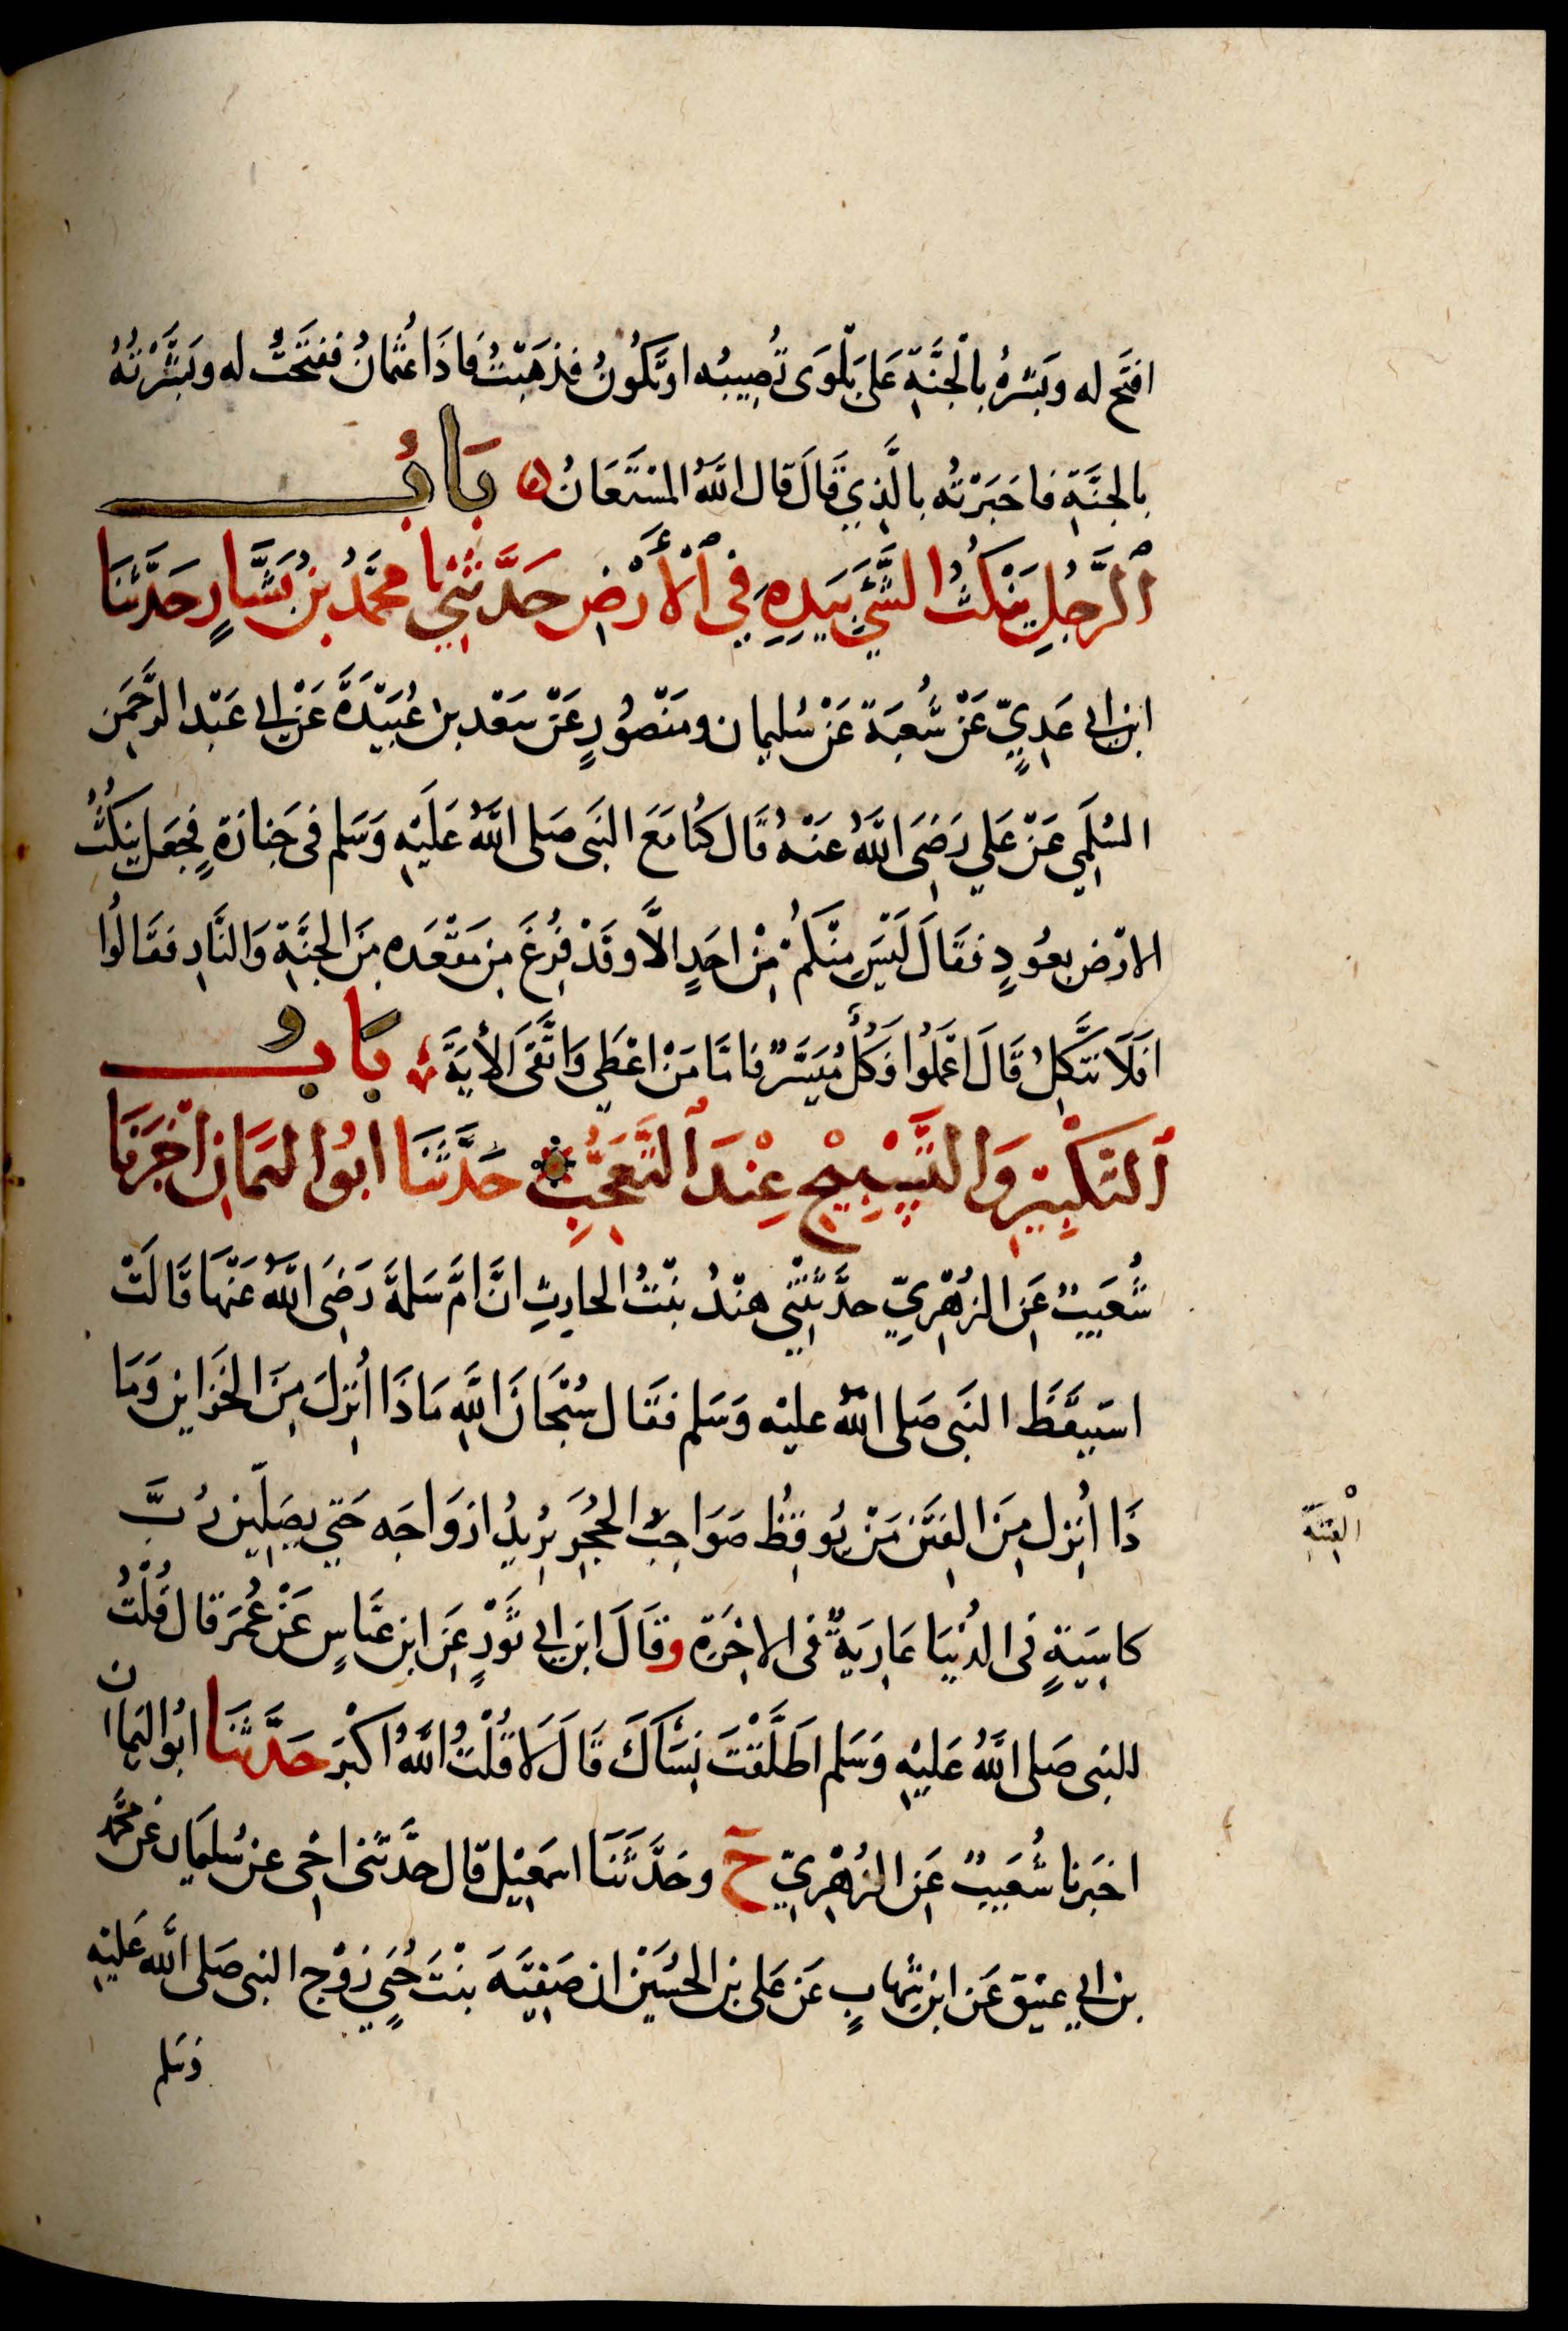 افتَح له وبَشِّرهُ بِالْجَنَّةِ عَلَى بَلْوَى تُصِيبُه اوتَكُونُ فذهَبْتُ فَاذَا عُثْمانُ ففتَحْتُ له وبَشَّرْتُهُ
بالجنَّةِ فاخبَرْتُه بالَّذِي قَالَ قال اللَّهُ المسْتَعَانُ ه بَابُ
الرَّجُلِ يَنْكُتُ الشَّيْءَ بِيَدِهِ فِي الْأَرْضِ حَدَّثَنِي محمَّدُ بنُ بَشَّارٍ حَدَّثَنَا
ابن ابي عَدِيٍّ عَنْ شُعبَةَ عَنْ سُليمان ومَنْصُورٍ عَنْ سَعْد بن عُبَيْدَةَ عَنْ ابي عَبْد الرَّحمَن
السُلَمِي عَنْ عَلي رَضِىَ اللَّهُ عَنْهُ قَال كُنا مَعَ النَبى صَلى اللَّهُ عَلَيْهِ وَسَلم فى جَنازةٍ فجعَل ينكُتُ
الارْض بعُودٍ فقَالَ لَيْسَ مِنْكُمْ مِنْ احَدٍ الاَّ وقَدْ فُرِغَ مِن مَقْعَده مِنَ الجنَّةِ وَالنَّارِ فقَالُوا
افَلاَ نَتَّكِلُ قَالَ اعْمَلُوا فَكُلٌّ مُيَسَّرٌ فامَّا مَنْ اعْطَي وَاتَّقَى الأيَةَ بَابُ
التَكْبِيرِ وَالتَسْبِيحِ عِنْدَ التَّعَجُّبِ حَدَّثَنَا ابُو اليَمَانِ اخْبَرَنَا
شُعَيبٌ عَنِ الزُهْرِيِّ حدَّثَتْنِي هنْدُ بنْتُ الحارِثِ انَّ امَّ سَلمةَ رَضِىَ اللَّهُ عَنْهَا قَالَتْ
استَيقَظَ النَبى صَلى اللهُ عليْه وَسَلم فقَال سُبْحَانَ اللَّهِ مَاذَا اُنْزِلَ مِنَ الخَزاين وَمَا
ذَا اُنزِل مِنَ الفِتَن مَنْ يُوقِظُ صَوَاحِبَ الحُجَرِ يُرِيدُ ازوَاجَه حَتي يصَلِّين رُبَّ
الفِتنَةِ
كاسِيَةٍ فى الدُنْيَا عَارِيَةٌ فى الاخِرَةِ وقَالَ ابن ابي ثَوْرٍ عَنِ ابن عبَّاسٍ عَنْ عُمَرَ قال قُلْتُ
للنبى صَلى اللَّهُ عَليْهِ وَسَلم اطَلَّقْتَ نِسَآكَ قَالَ لاَ قُلْتُ اللَّهُ اكْبَر حَدَّثَنَا ابُو اليَمان
اخبَرنا شُعَيبٌ عَنِ الزُهْرِيِّ ح وحَدَّثَنَا اسمَعِيل قال حدَّثَنى اخِى عن سُليمَان عَنْ محمَّد
بن ابي عتيق عَن ابن شِهابٍ عَن عَلى بن الحُسَيْن ان صَفِيَّةَ بنْتَ حُيَيٍّ زَوْج النبى صَلى اللَّه عَليْهِ
وَسَلم